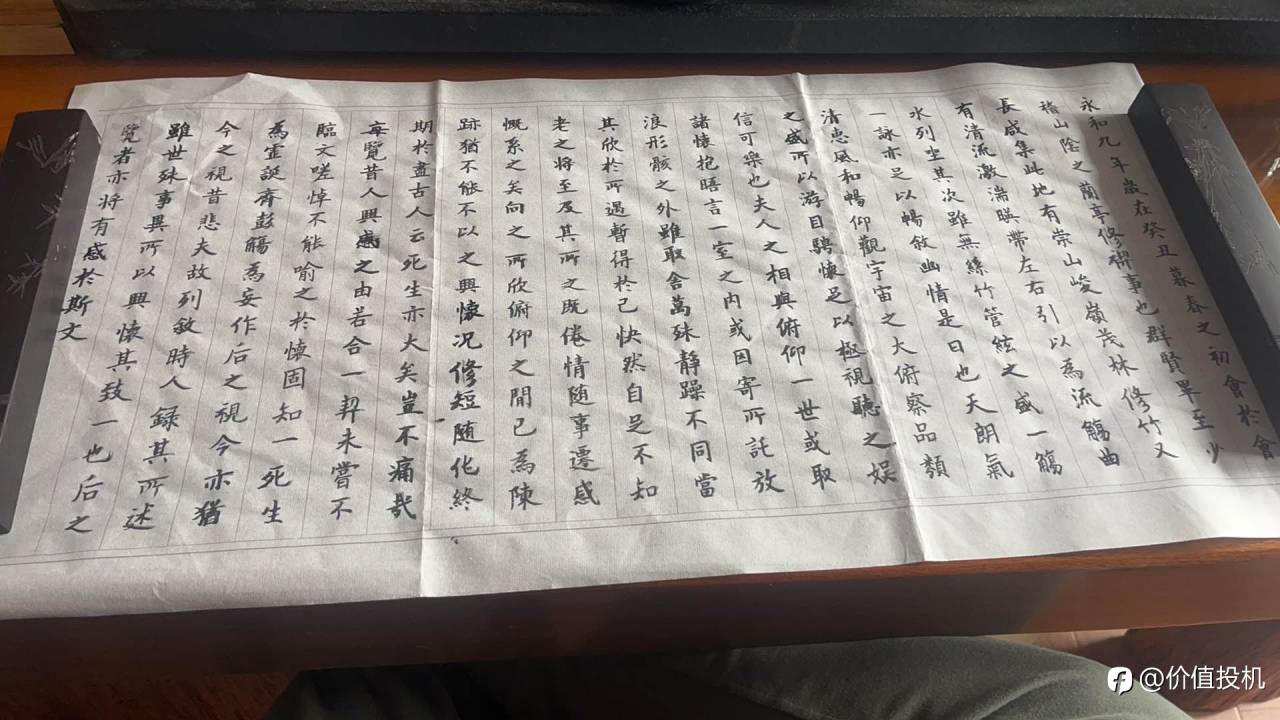 永和九年歲在癸丑暮春之初會於會
稽山陰之蘭亭修禊事也群賢畢至少
長咸集此地有崇山峻嶺茂林修竹又
有清流激湍暎帶左右引以為流觴曲
水列坐其次雖無絲竹管絃之盛一觴
一詠亦足以暢敘幽情是日也天朗氣
清惠風和暢仰觀宇宙之大俯察品類
之盛所以游目騁懷足以極視聽之娱
信可樂也夫人之相與俯仰一世或取
諸懷抱晤言一室之内或因寄所託放
浪形骸之外雖取舍萬殊静躁不同當
其欣於所遇暫得於己快然自足不知
老之将至及其所之既倦情随事遷感
慨系之矣向之所欣俯仰之間已為陳
跡猶不能不以之興懷况修短随化終
期於盡古人云死生亦大矣豈不痛哉
每覽昔人興感之由若合一契未嘗不
臨文嗟悼不能喻之於懷固知一死生
為虛誕齊彭觴為妄作后之視今亦猶
今之視昔悲夫故列敘時人録其所述
雖世殊事異所以興懷其致一也后之
覽者亦将有感於斯文
@价值投机